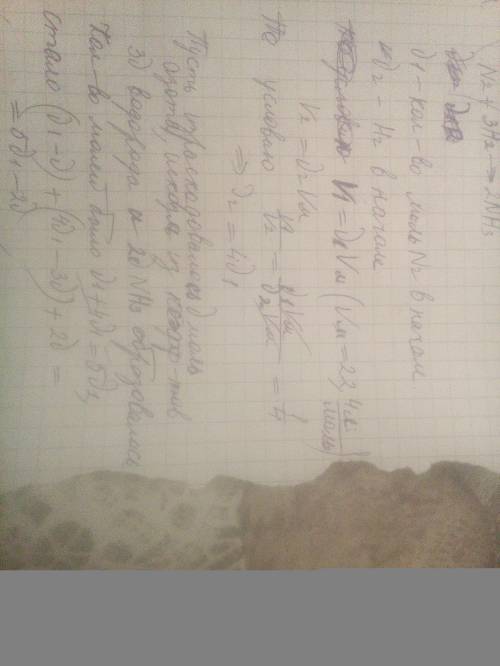 N₂ + 3H₂ → 2NH₃
ν₁ - кол-во моль N₂ в начале
ν₂ - H₂ в начале
V₁ = ν₁Vм (Vм = 22,4 л/моль)
V₂ = ν₂Vм
По условию V₁/V₂ = ν₁Vм/ν₂Vм = 1/4
⇒ ν₂ = 4ν₁
Пусть израсходовалось ν моль
азота, исходя из коэфф-тов
3ν водорода и 2ν NH₃ образовалось
Кол-во молей было ν₁+4ν₁ = 5ν₁,
стало (ν₁-ν) + (4ν₁-3ν) + 2ν =
= 5ν₁ - 2ν